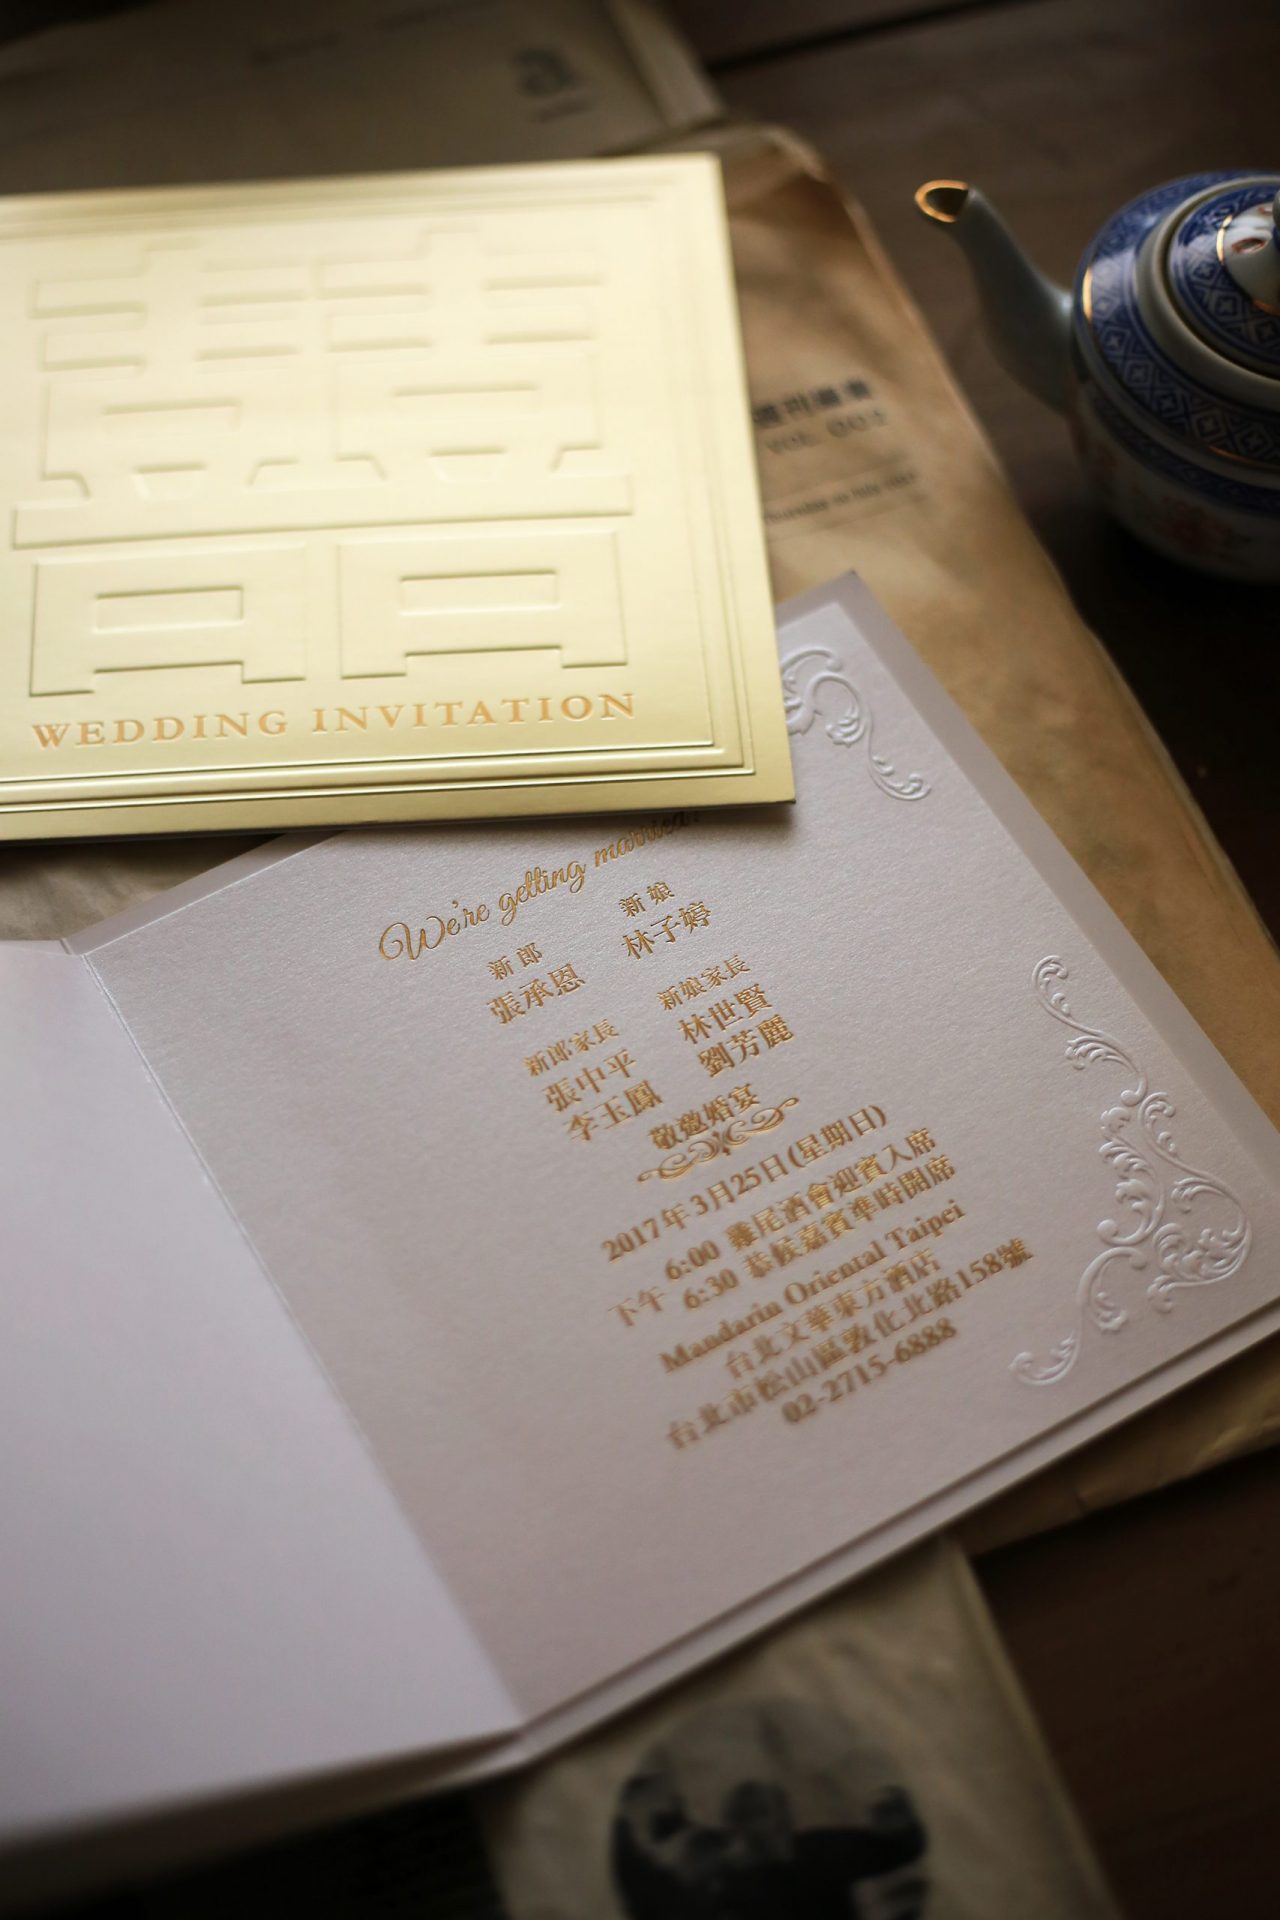 囍
WEDDING INVITATION
VOL. 001
We're getting married!
新郎 新娘
張承恩 林子婷
新郎家長 新娘家長
張中平 林世賢
李玉鳳 劉芳麗
敬邀婚宴
2017年3月25日(星期日)
下午 6:00 雞尾酒會迎賓入席
6:30 恭候嘉賓準時開席
Mandarin Oriental Taipei
台北文華東方酒店
台北市松山區敦化北路158號
02-2715-6888